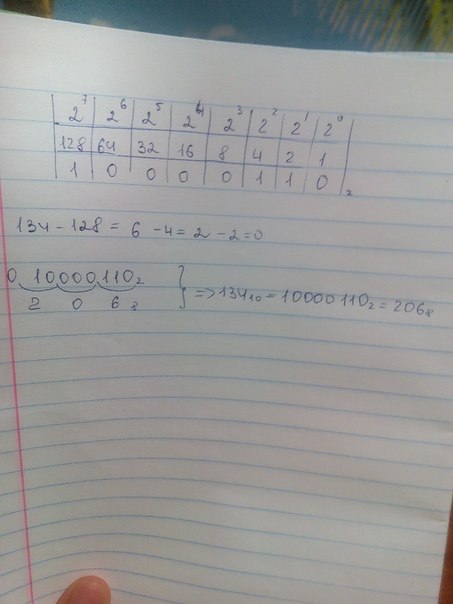 2⁷ 2⁶ 2⁵ 2⁴ 2³ 2² 2¹ 2⁰
128 64 32 16 8 4 2 1
1 0 0 0 0 1 1 0 ₂
134 - 128 = 6 - 4 = 2 - 2 = 0
0 10000110₂ } => 134₁₀ = 10000110₂ = 206₈
2 0 6₈